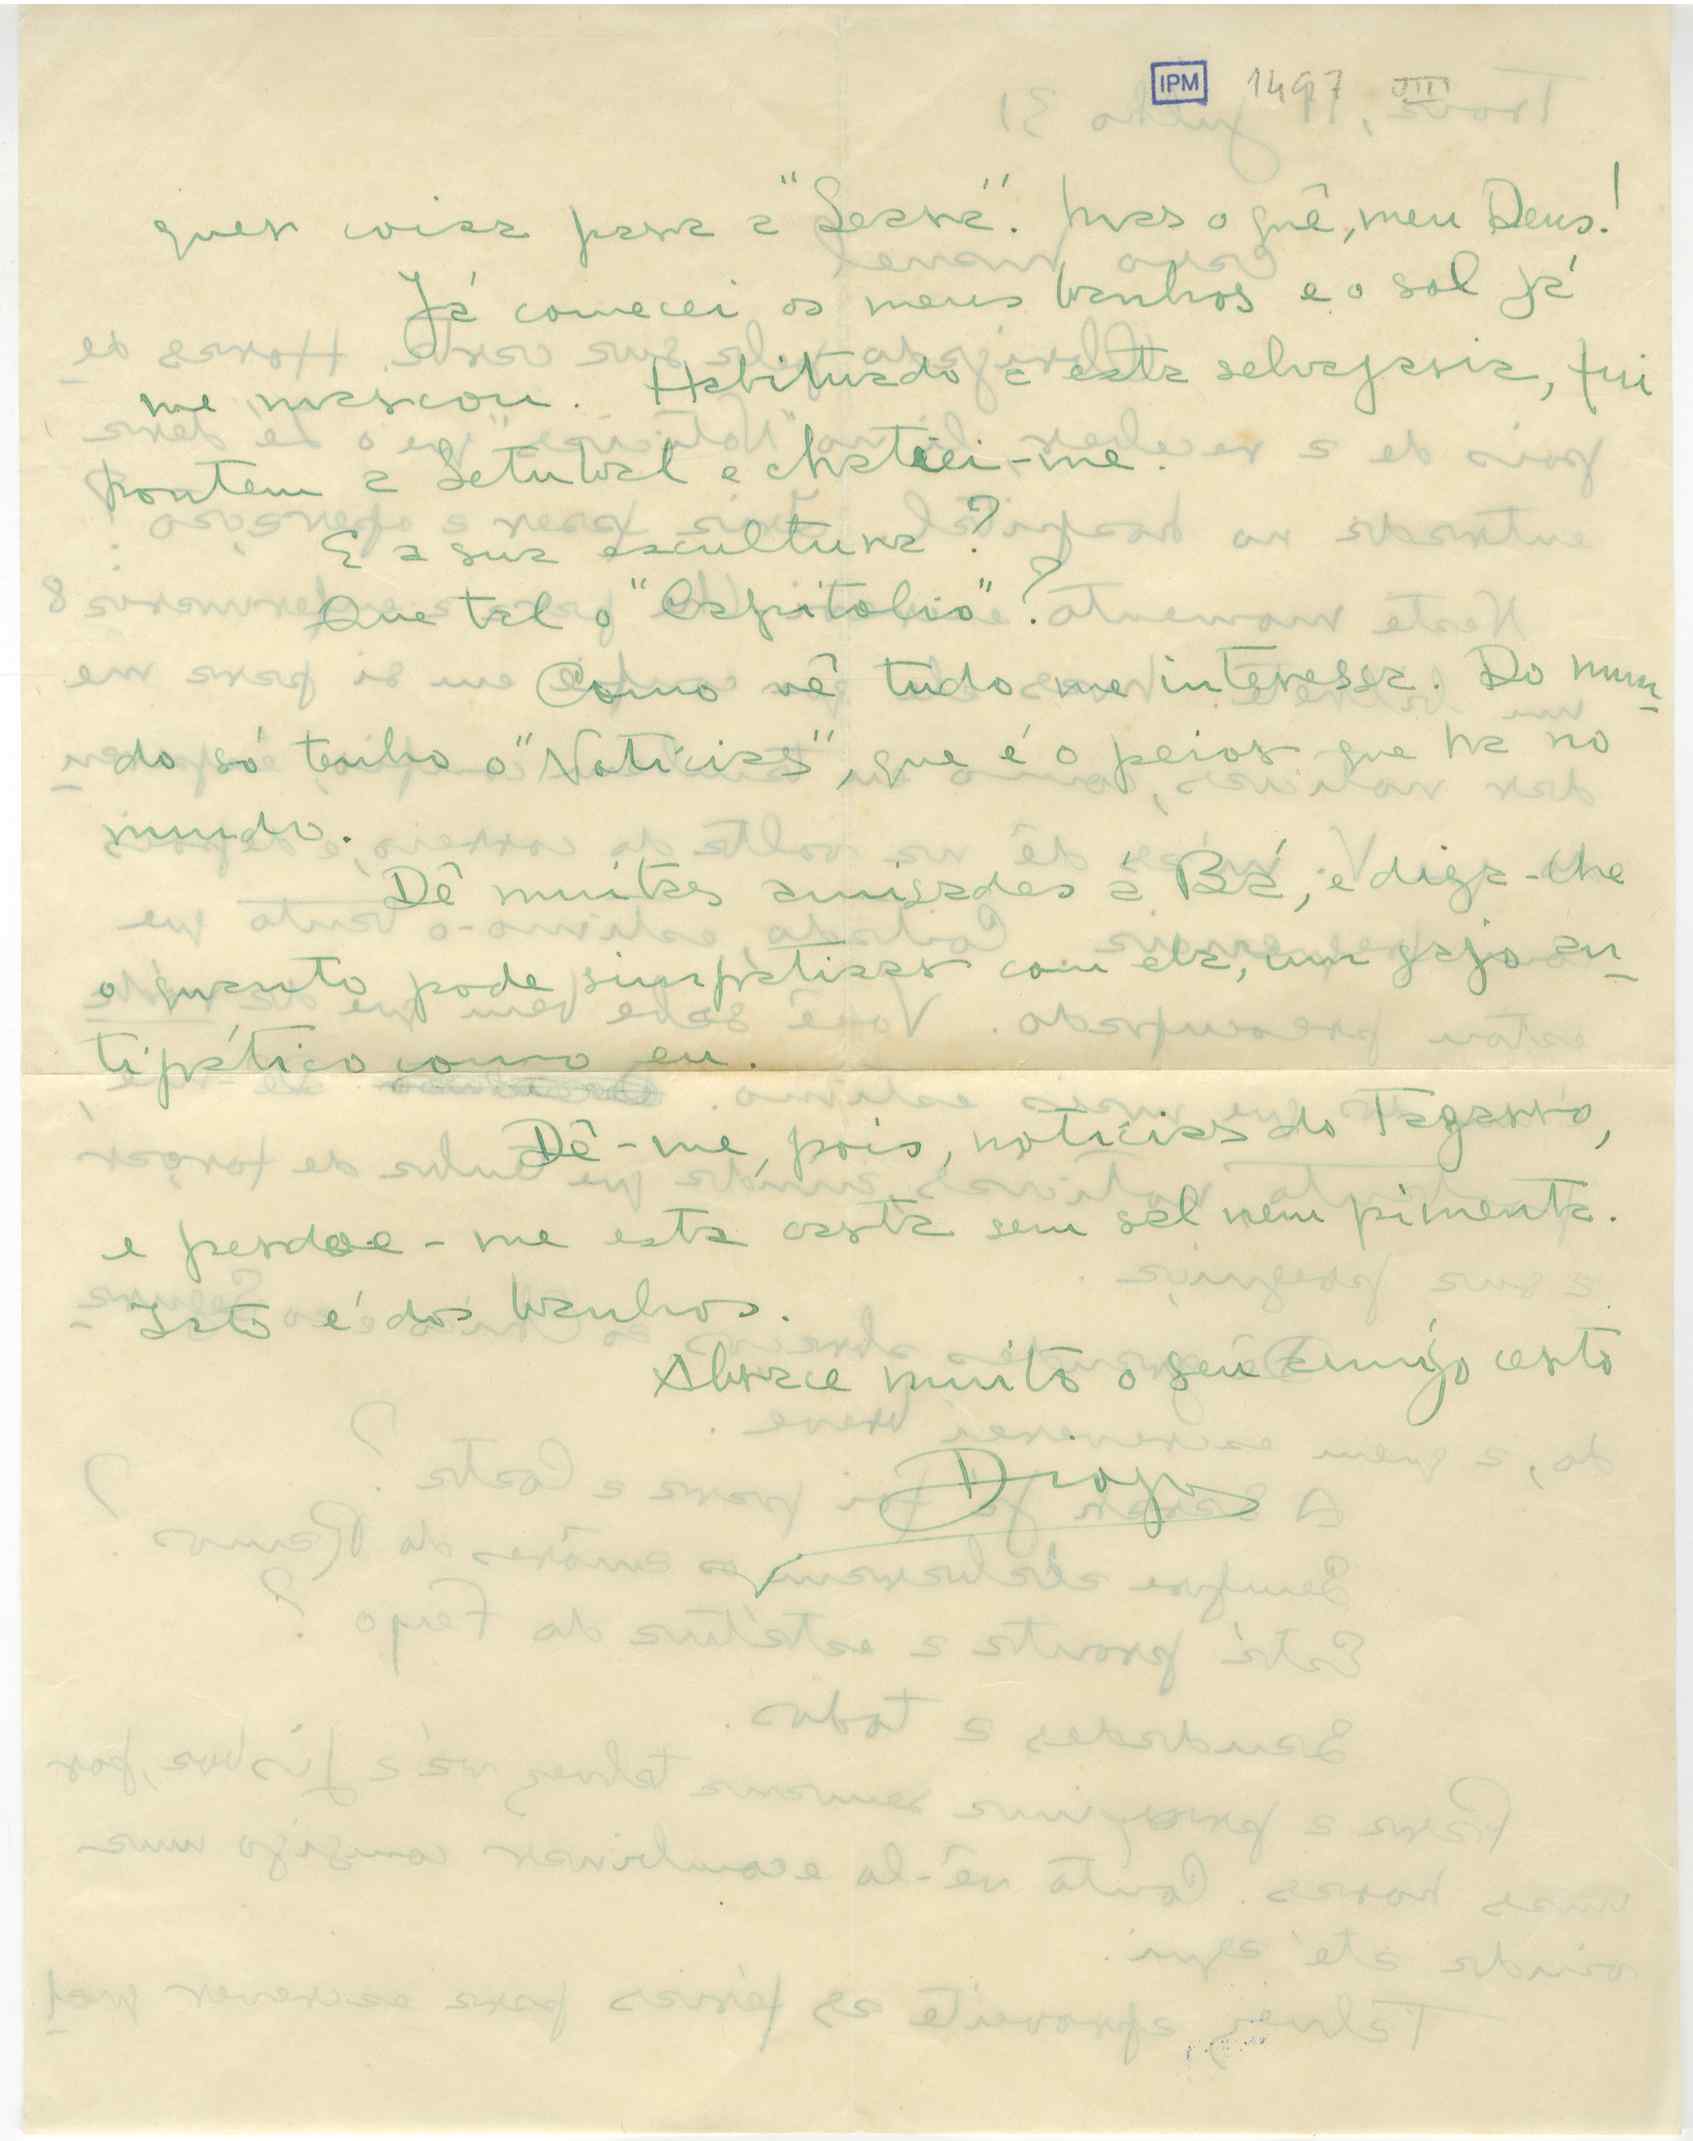 IPM 1497 VIII
quer coisa para a "Seara". Mas o quê, meu Deus!
Já comecei os meus banhos e o sol já
me mascou. Habituado a esta selvajaria, fui
hontem a Setubal e chateei-me.
E a sua escultura?
Que tal o "Capitolio"?
Como vê tudo me interessa. Do mun-
do só tenho o "Noticias", que é o peior que ha no
mundo.
Dê muitas amisades á Bá, e diga-lhe
o quanto pode simpatizar com ela, um gajo an-
tipático como eu.
Dê-me, pois, noticias do Tagarro,
e perdoe-me esta carta sem sal nem pimenta.
Isto é dos banhos.
Abrace muito o seu amigo certo